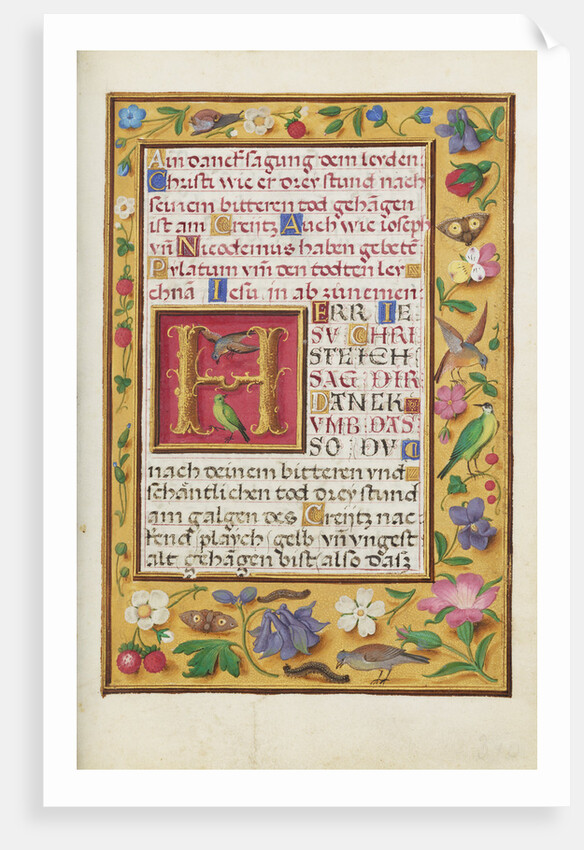 Ain danckſagung dem leyden
Chriſti wie er drey ſtund nach
ſeinem bitteren tod gehāgen
iſt am Creŷtz Auch wie ioſeph
vn̄ Nicodemus haben gebetē
Pylatum vm̄ den todten ley
chnā Ieſu in ab zunemen
HERR IE
SV CHRI
STE ICH
SAG DIR
DANCK
VMB DAS
SO DV
nach deinem bitteren vnd
ſchāntlichen tod drey ſtund
am galgen des Creŷtz nac⸗
kend playch gelb vn̄ vngeſt
alt gehāgen biſt alſo daſz